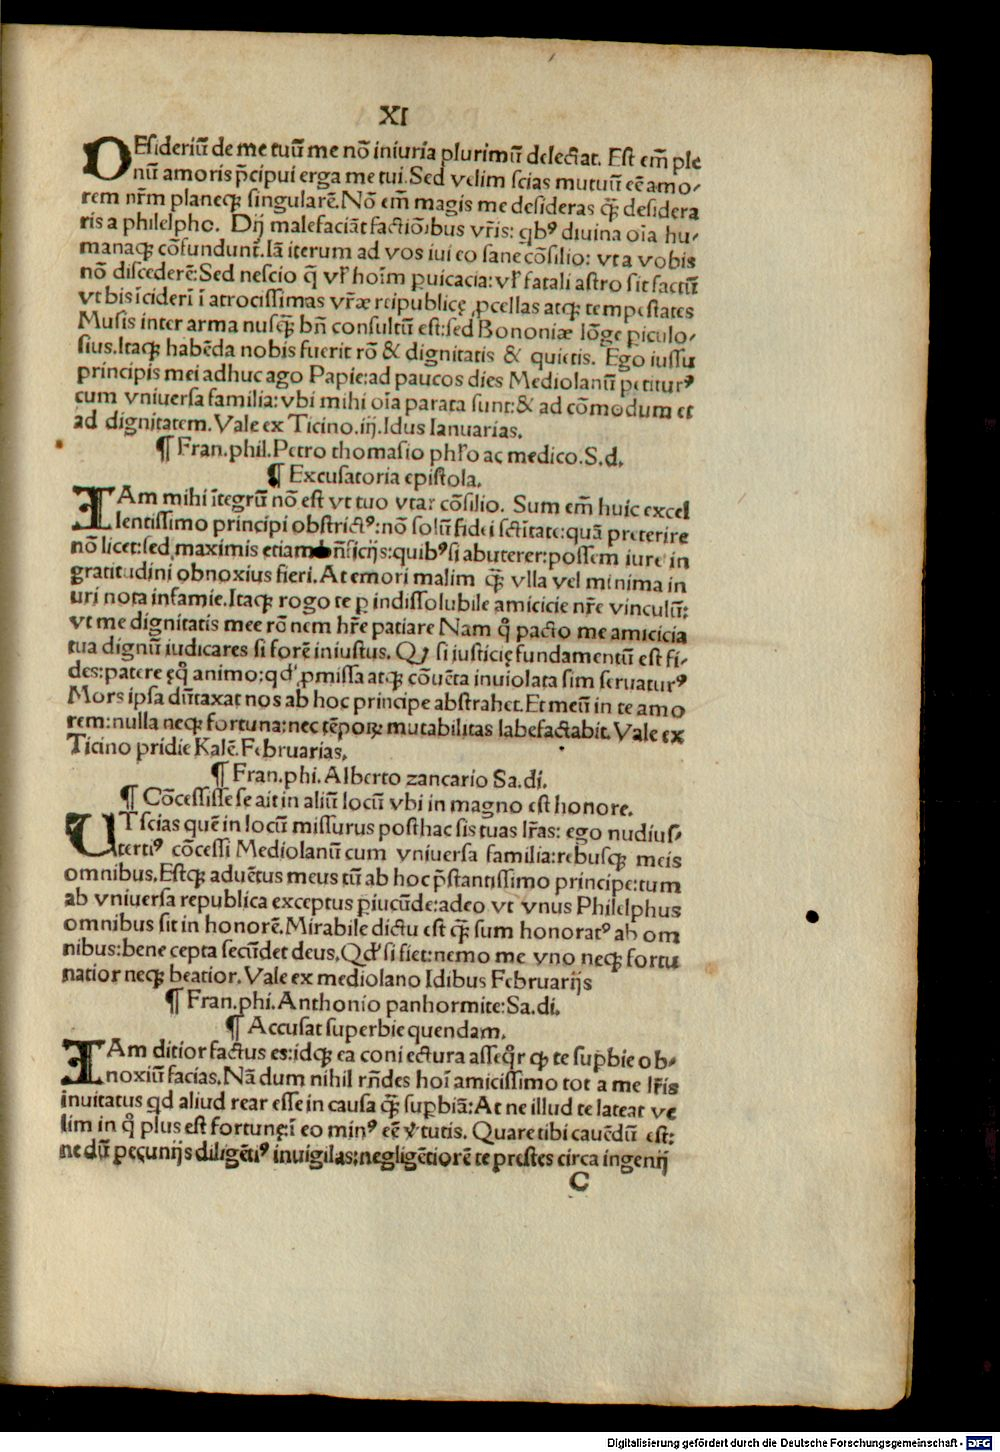 XI
DEsideriū de me tuū me nō iniuria plurimū delectat. Est em̄ ple
nū amoris p̄cipui erga me tui. Sed velim scias mutuū eē amo⸗
rem nr̄m planeqꝫ singularē. Nō em̄ magis me desideras q̄ꝫ desidera
ris a philelpho. Dij malefaciāt factiōibus vr̄is: qbꝰ diuina oīa hu⸗
manaqꝫ cōfundunt̄. Iā iterum ad vos iui eo sane cōsilio: vt a vobis
nō discederē: Sed nescio q̄ vł hoīm ꝑuicacia: vł fatali astro sit factū
vt bis īciderī ī atrocissimas vr̄æ reipublicę ꝓcellas atqꝫ tempestates
Musis inter arma nusq̄ꝫ bn̄ consultū est: sed Bononiæ lōge ꝑiculo⸗
sius. Itaqꝫ habēda nobis fuerit rō & dignitatis & quietis. Ego iussu
principis mei adhuc ago Papie: ad paucos dies Mediolanū petiturꝰ
cum vniuersa familia: vbi mihi oīa parata sunt: & ad cōmodum et
ad dignitatem. Vale ex Ticino. iij. Idus Ianuarias.
¶ Fran. phil. Petro thomasio phł'o ac medico. S. d.
¶ Excusatoria epistola.
IAm mihi ītegrū nō est vt tuo vtar cōsilio. Sum em̄ huic excel
lentissimo principi obstrictꝰ: nō solū fidei sctītate: quā preterire
nō licet: sed maximis etiam bn̄ficijs: quibꝰ si abuterer: possem iure in
gratitudini obnoxius fieri. At emori malim q̄ꝫ vlla vel minima in
uri nota infamie. Itaqꝫ rogo te ꝑ indissolubile amicicie nr̄e vinculū:
vt me dignitatis mee rōnem hr̄e patiare Nam qͦ pacto me amicicia
tua dignū iudicares si forē iniustus. Qꝫ si iusticię fundamentū est fi⸗
des: patere ęqͦ animo: qd' ꝓmissa atqꝫ cōuēta inuiolata sim seruaturꝰ
Mors ipsa dūtaxat nos ab hoc principe abstrahet. Et meū in te amo
rem: nulla neqꝫ fortuna: nec tēpoꝝ mutabilitas labefactabit. Vale ex
Ticino pridie Kalē. Februarias.
¶ Fran. phi. Alberto zancario Sa. di.
¶ Cōcessisse se ait in aliū locū vbi in magno est honore.
UT scias quē in locū missurus posthac sis tuas lr̄as: ego nudius⸗
tertiꝰ cōcessi Mediolanū cum vniuersa familia: rebusqꝫ meis
omnibus. Estqꝫ aduētus meus tū ab hoc p̄stantissimo principe: tum
ab vniuersa republica exceptus ꝑiucūde: adeo vt vnus Philelphus
omnibus sit in honorē. Mirabile dictu est q̄ꝫ sum honoratꝰ ab om
nibus: bene cepta secūdet deus. Qd' si fiet: nemo me vno neqꝫ fortu
natior neqꝫ beatior. Vale ex mediolano Idibus Februarijs
¶ Fran. phi. Anthonio panhormite: Sa. di.
¶ Accusat superbie quendam.
IAm ditior factus es: idqꝫ ea coni ectura asseqͦr qꝫ te suꝑbie ob⸗
noxiū facias. Nā dum nihil rn̄des hoī amicissimo tot a me lr̄is
inuitatus qd aliud rear esse in causa q̄ꝫ suꝑbiā: At ne illud te lateat ve
lim in qͦ plus est fortunę: ī eo minꝰ eē v̓tutis. Quare tibi cauēdū est:
ne dū pecunijs diligētiꝰ inuigilas: negligētiorē te prestes circa ingenij
C
Digitalisierung gefördert durch die Deutsche Forschungsgemeinschaft - DFG